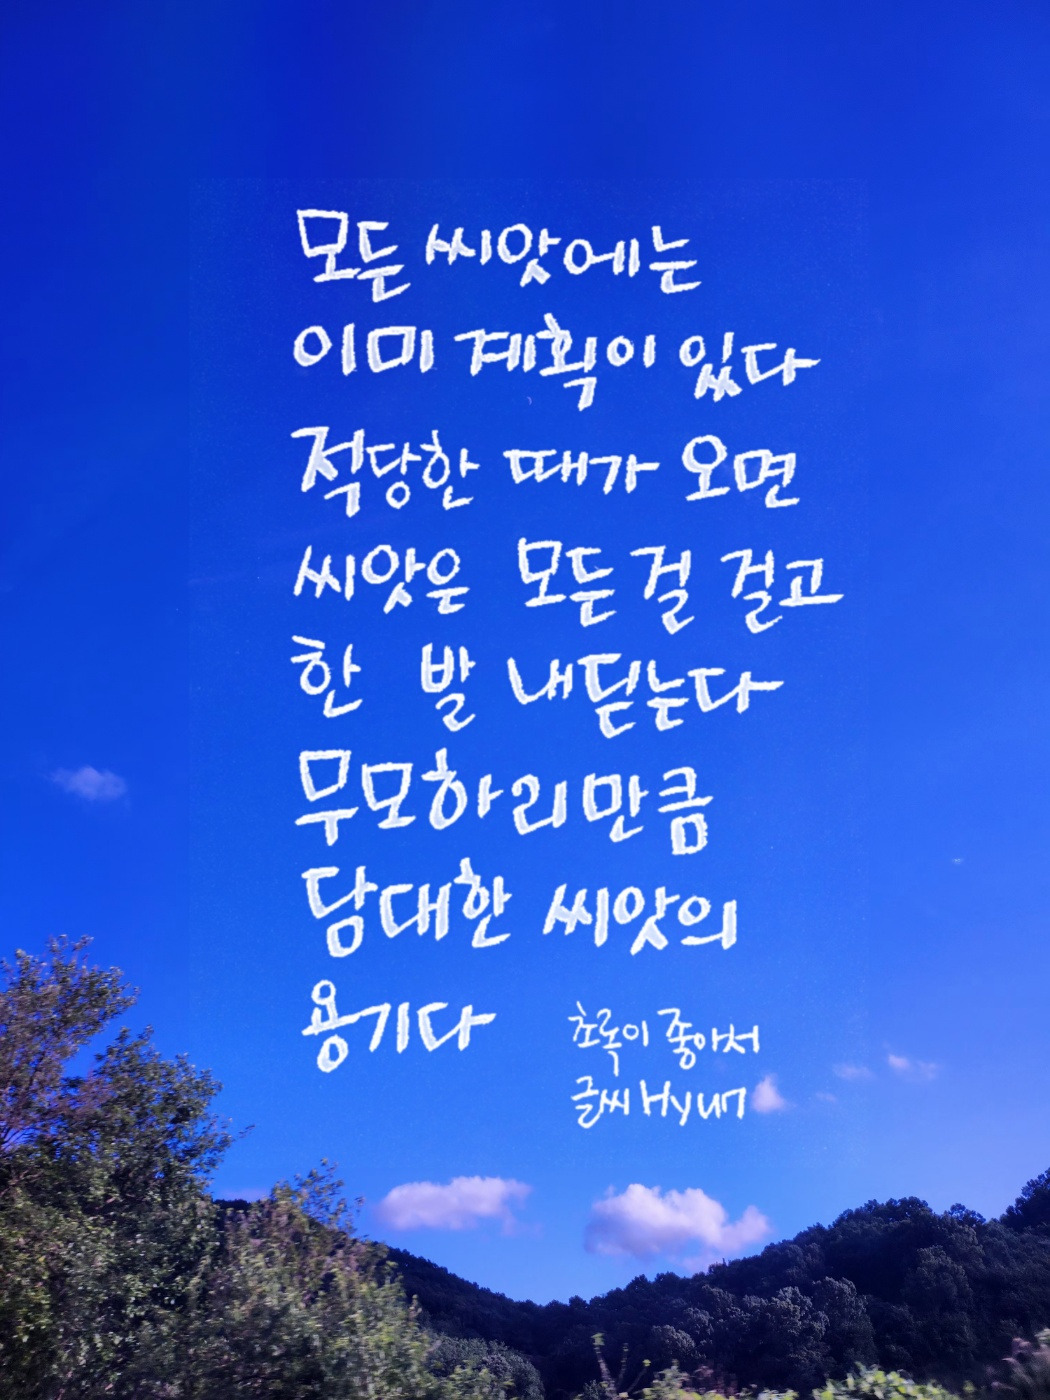 모든 씨앗에는
이미 계획이 있다
적당한 때가 오면
씨앗은 모든 걸 걸고
한 발 내딛는다
무모하리만큼
담대한 씨앗의
용기다
초록이 좋아서
글씨 Hyun